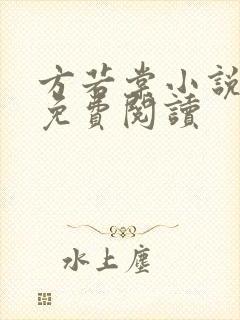 方若棠小說
免費閱讀
水上塵